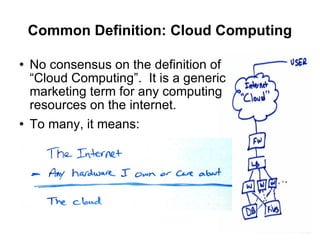 Common Definition: Cloud Computing
• No consensus on the definition of
“Cloud Computing”.  It is a generic
marketing term for any computing
resources on the internet.
• To many, it means:
The Internet
- Any hardware I own or care about
The cloud
USER
Internet
"Cloud"
FW
LB
W W W
DB